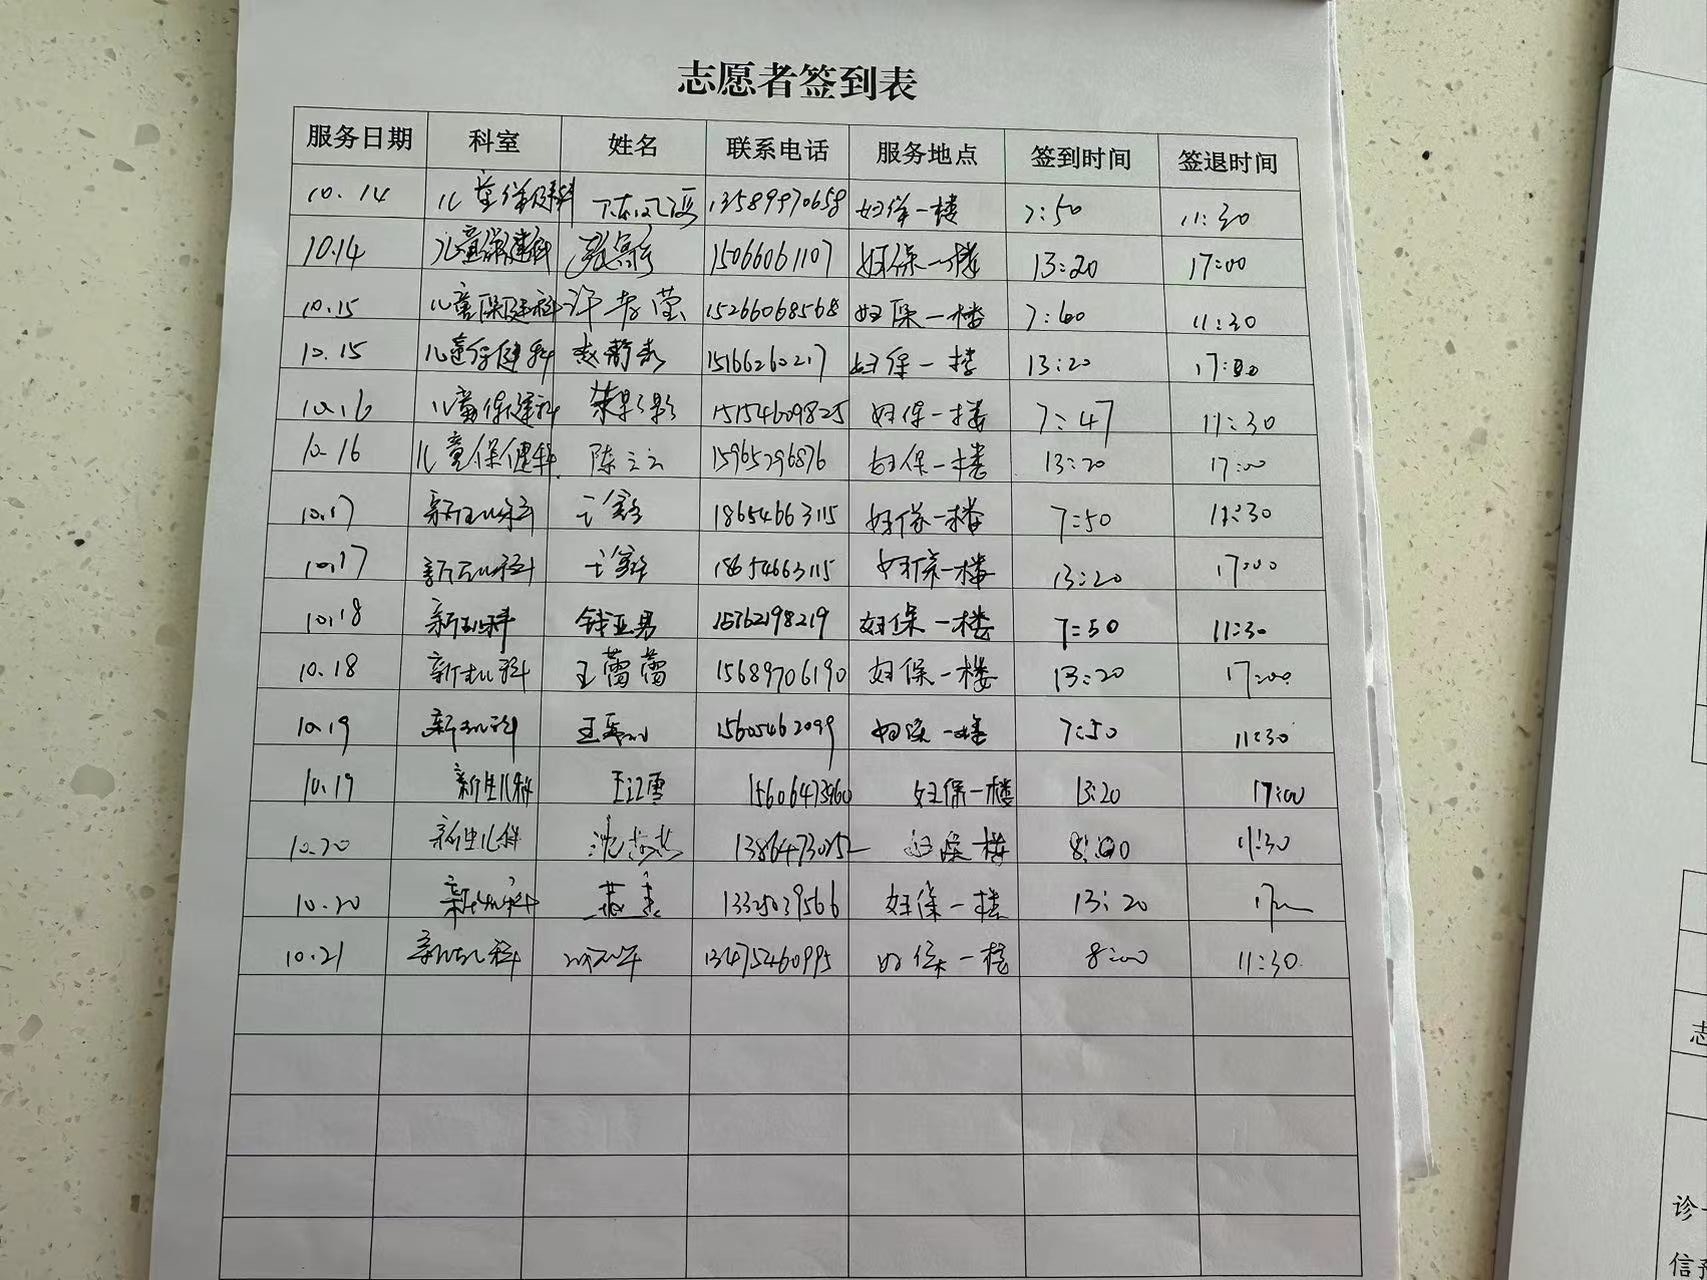 志愿者签到表
服务日期 科室 姓名 联系电话 服务地点 签到时间 签退时间
10.14 儿童保健科 13589970658 妇保一楼 7:50 11:30
10.14 儿童保健科 15066061107 妇保一楼 13:20 17:00
10.15 儿童保健科 许 莹 15266068568 妇保一楼 11:30
10.15 儿童保健科 赵静 15166260217 妇保一楼 13:20 17:00
10.16 儿童保健科 15154609825 妇保一楼 7:47 11:30
10.16 儿童保健科 陈立云 15965296876 妇保一楼 13:20 17:00
10.17 新生儿科 18654663115 妇保一楼 7:50 11:30
10.17 新生儿科 18654663115 妇保一楼 13:20 17:00
10.18 新生儿科 钱亚男 15762198219 妇保一楼 7:50 11:30
10.18 新生儿科 王蕾蕾 15689706190 妇保一楼 13:20 17:00
10.19 新生儿科 15605462099 妇保一楼 7:50 11:30
10.19 新生儿科 王江雪 妇保一楼 13:20 17:00
10.20 新生儿科 沈 妇保一楼 8:00 11:30
10.20 新生儿科 13325039566 妇保一楼 13:20
10.21 新生儿科 13475460995 妇保一楼 8:00 11:30
志
诊
信